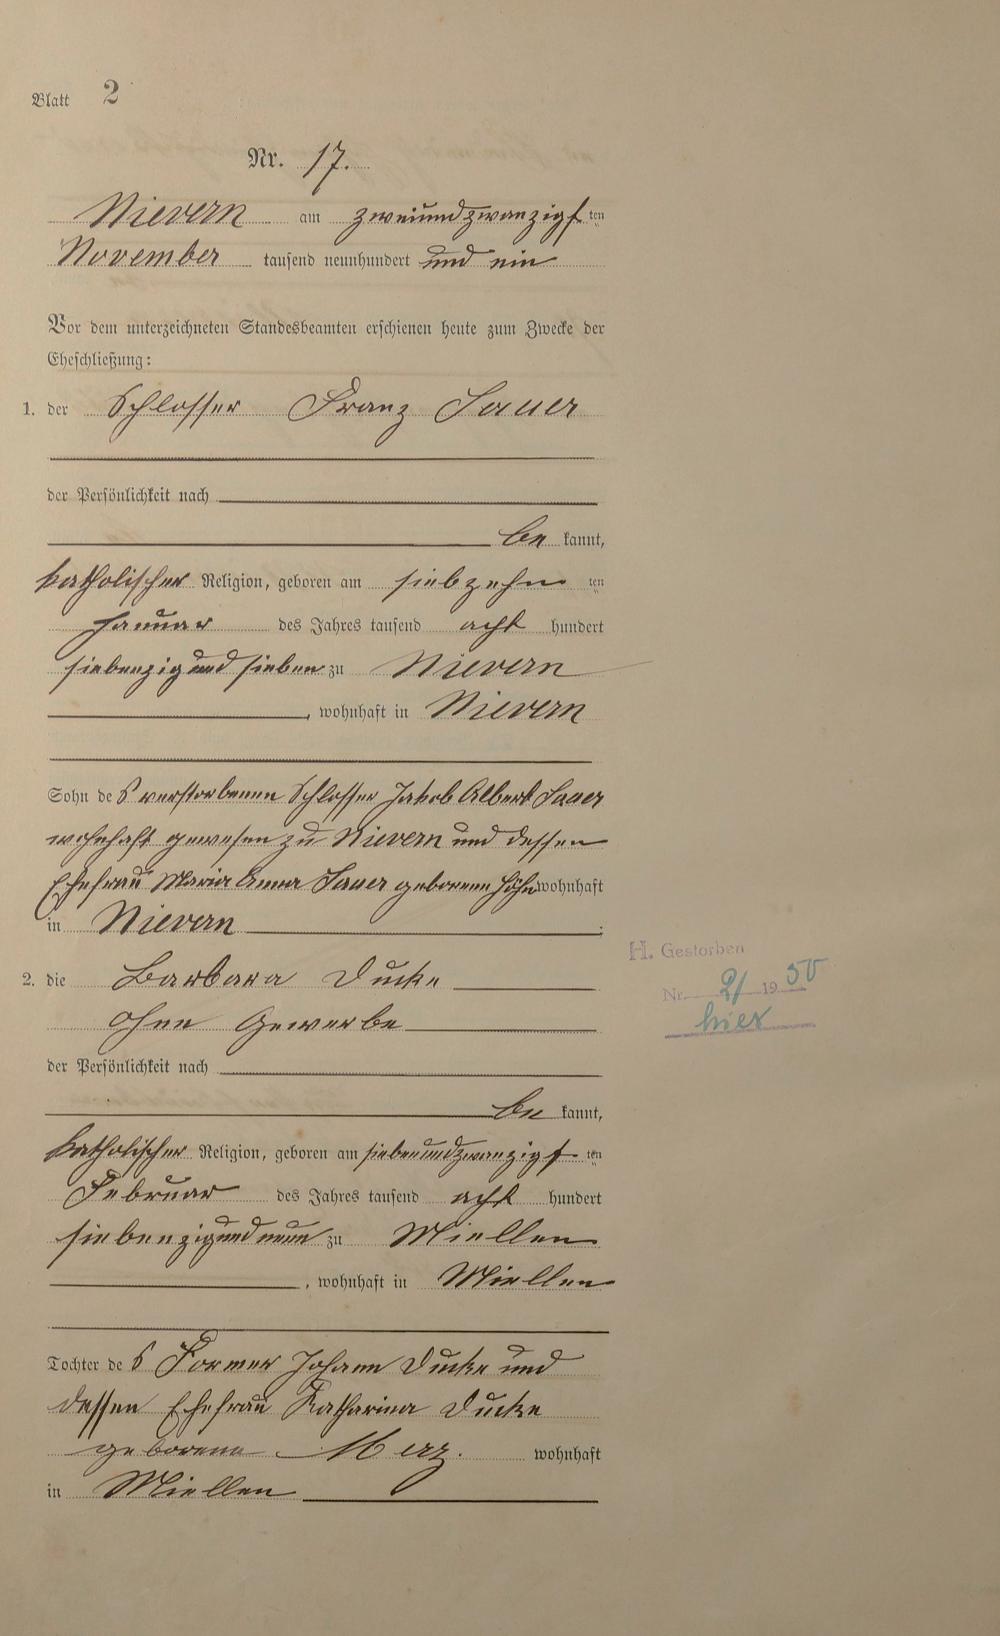 Blatt 2
Nr. 17.
Nievern am zweiundzwanzigsten
November tausend neunhundert und ein
Vor dem unterzeichneten Standesbeamten erschienen heute zum Zwecke der
Eheschließung:
1. der Schlosser Franz Sauer
der Persönlichkeit nach
be kannt,
katholischer Religion, geboren am siebzehn ten
Januar des Jahres tausend acht hundert
siebenzig und sieben zu Nievern
, wohnhaft in Nievern
Sohn des verstorbenen Schlosser Jakob Albert Sauer
wohnhaft gewesen zu Nievern und dessen
Ehefrau Maria Anna Sauer geborenen wohnhaft
in Nievern
2. die Barbara Ducke
ohne Gewerbe
der Persönlichkeit nach
be kannt,
katholischer Religion, geboren am siebenundzwanzigsten
Februar des Jahres tausend acht hundert
siebenzigundneun zu Miellen
, wohnhaft in Miellen
Tochter des Former Johann Ducke und
dessen Ehefrau Katharina Ducke
geborene Merz. wohnhaft
in Miellen
H. Gestorben
Nr. 2/ 1950
hier